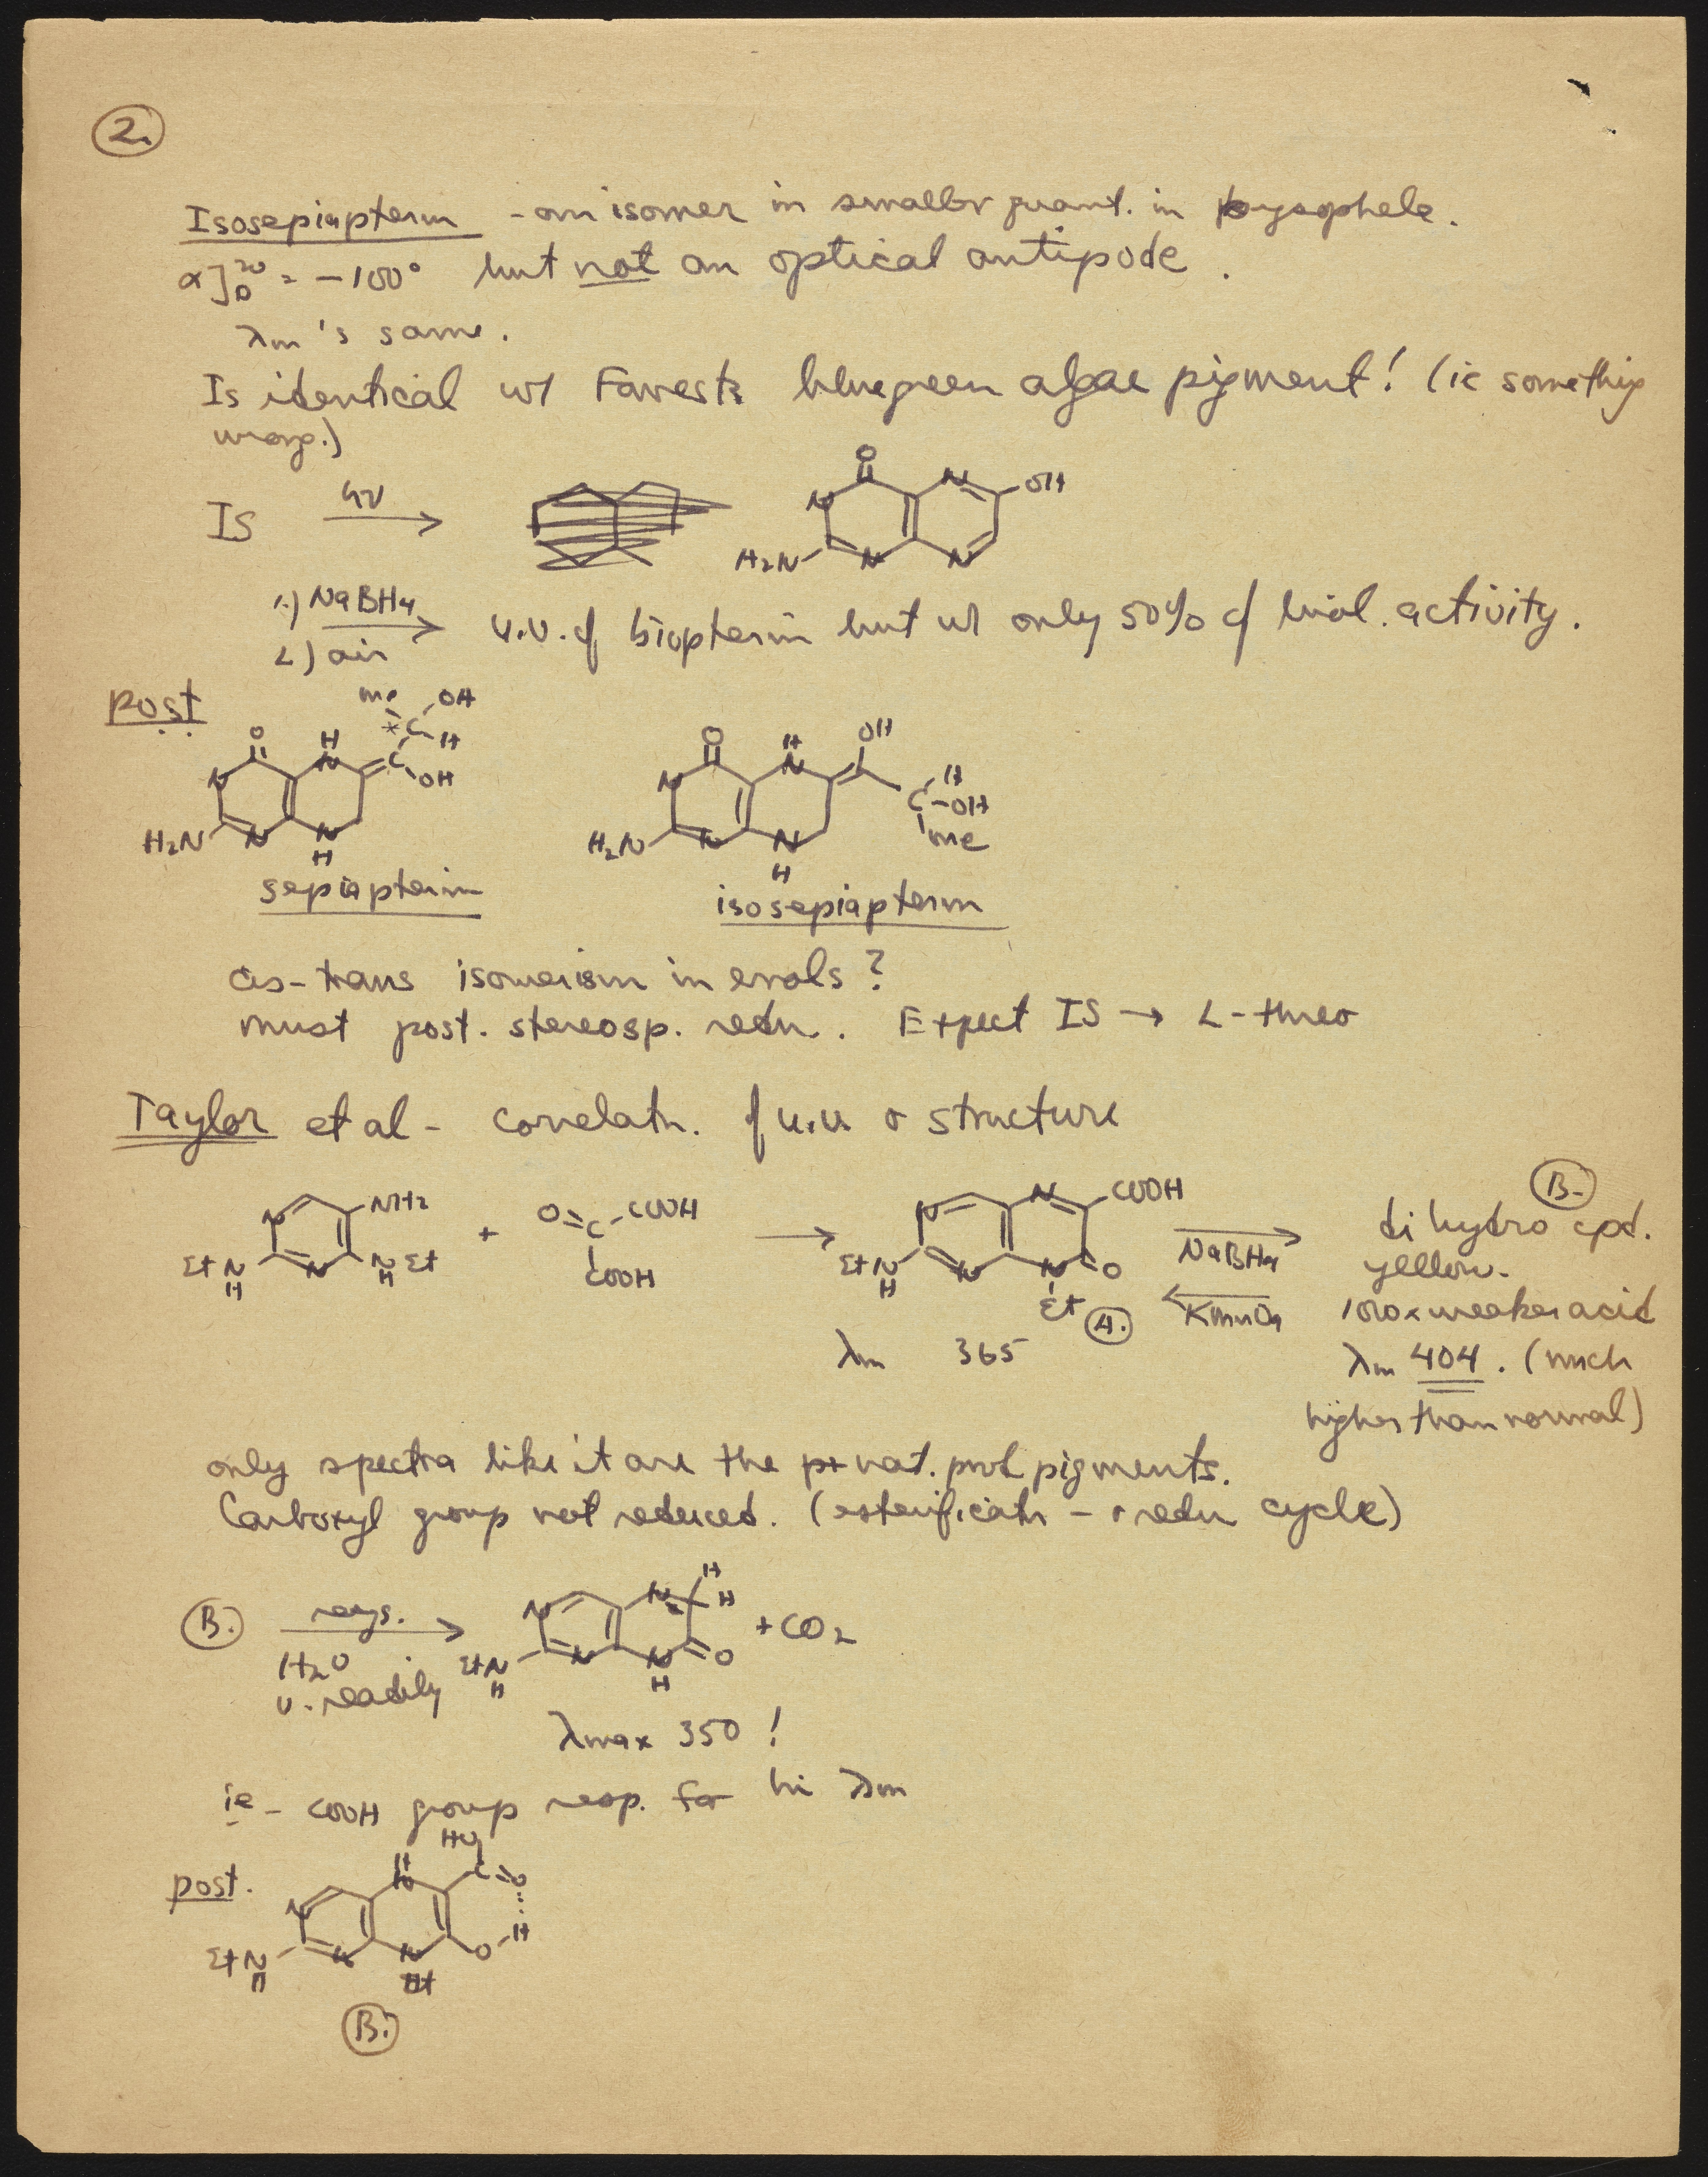 2.
Isosepiapterin - an isomer in smaller quant. in
α]D20 = -100° but not an optical antipode.
λm's same.
Is identical w/ Forrest's bluegreen algae pigment! (ie something
wrong.)
IS hν →
O N N OH N H2N N N
1.) NaBH4
2.) air
u.v. of biopterin but w/ only 50% of biol. activity.
post
me OH * C H C OH O H N N H2N N N H
sepiapterin
O H N OH N H C-OH me H2N N N H
isosepiapterin
cis-trans isomerism in enols?
must post. stereosp. redn. Expect IS → L-threo
Taylor et al - correlatn. of u.v. & structure
N NH2 EtN H N N Et H + O=C-COOH COOH → N N COOH EtN H N N O Et A. NaBH4 KMnO4
B.
dihydro cpd.
yellow.
100x weaker acid
λm 404. (much
higher than normal)
λm 365
only spectra like it are the nat. prod pigments.
Carboxyl group not reduced. (esterificatn - & redn cycle)
B. H2O v. readily
N N H H EtN H N N O H + CO2
λmax 350!
ie - COOH group resp. for hi λm
post.
HO C=O H N N H EtN H N N O
B.